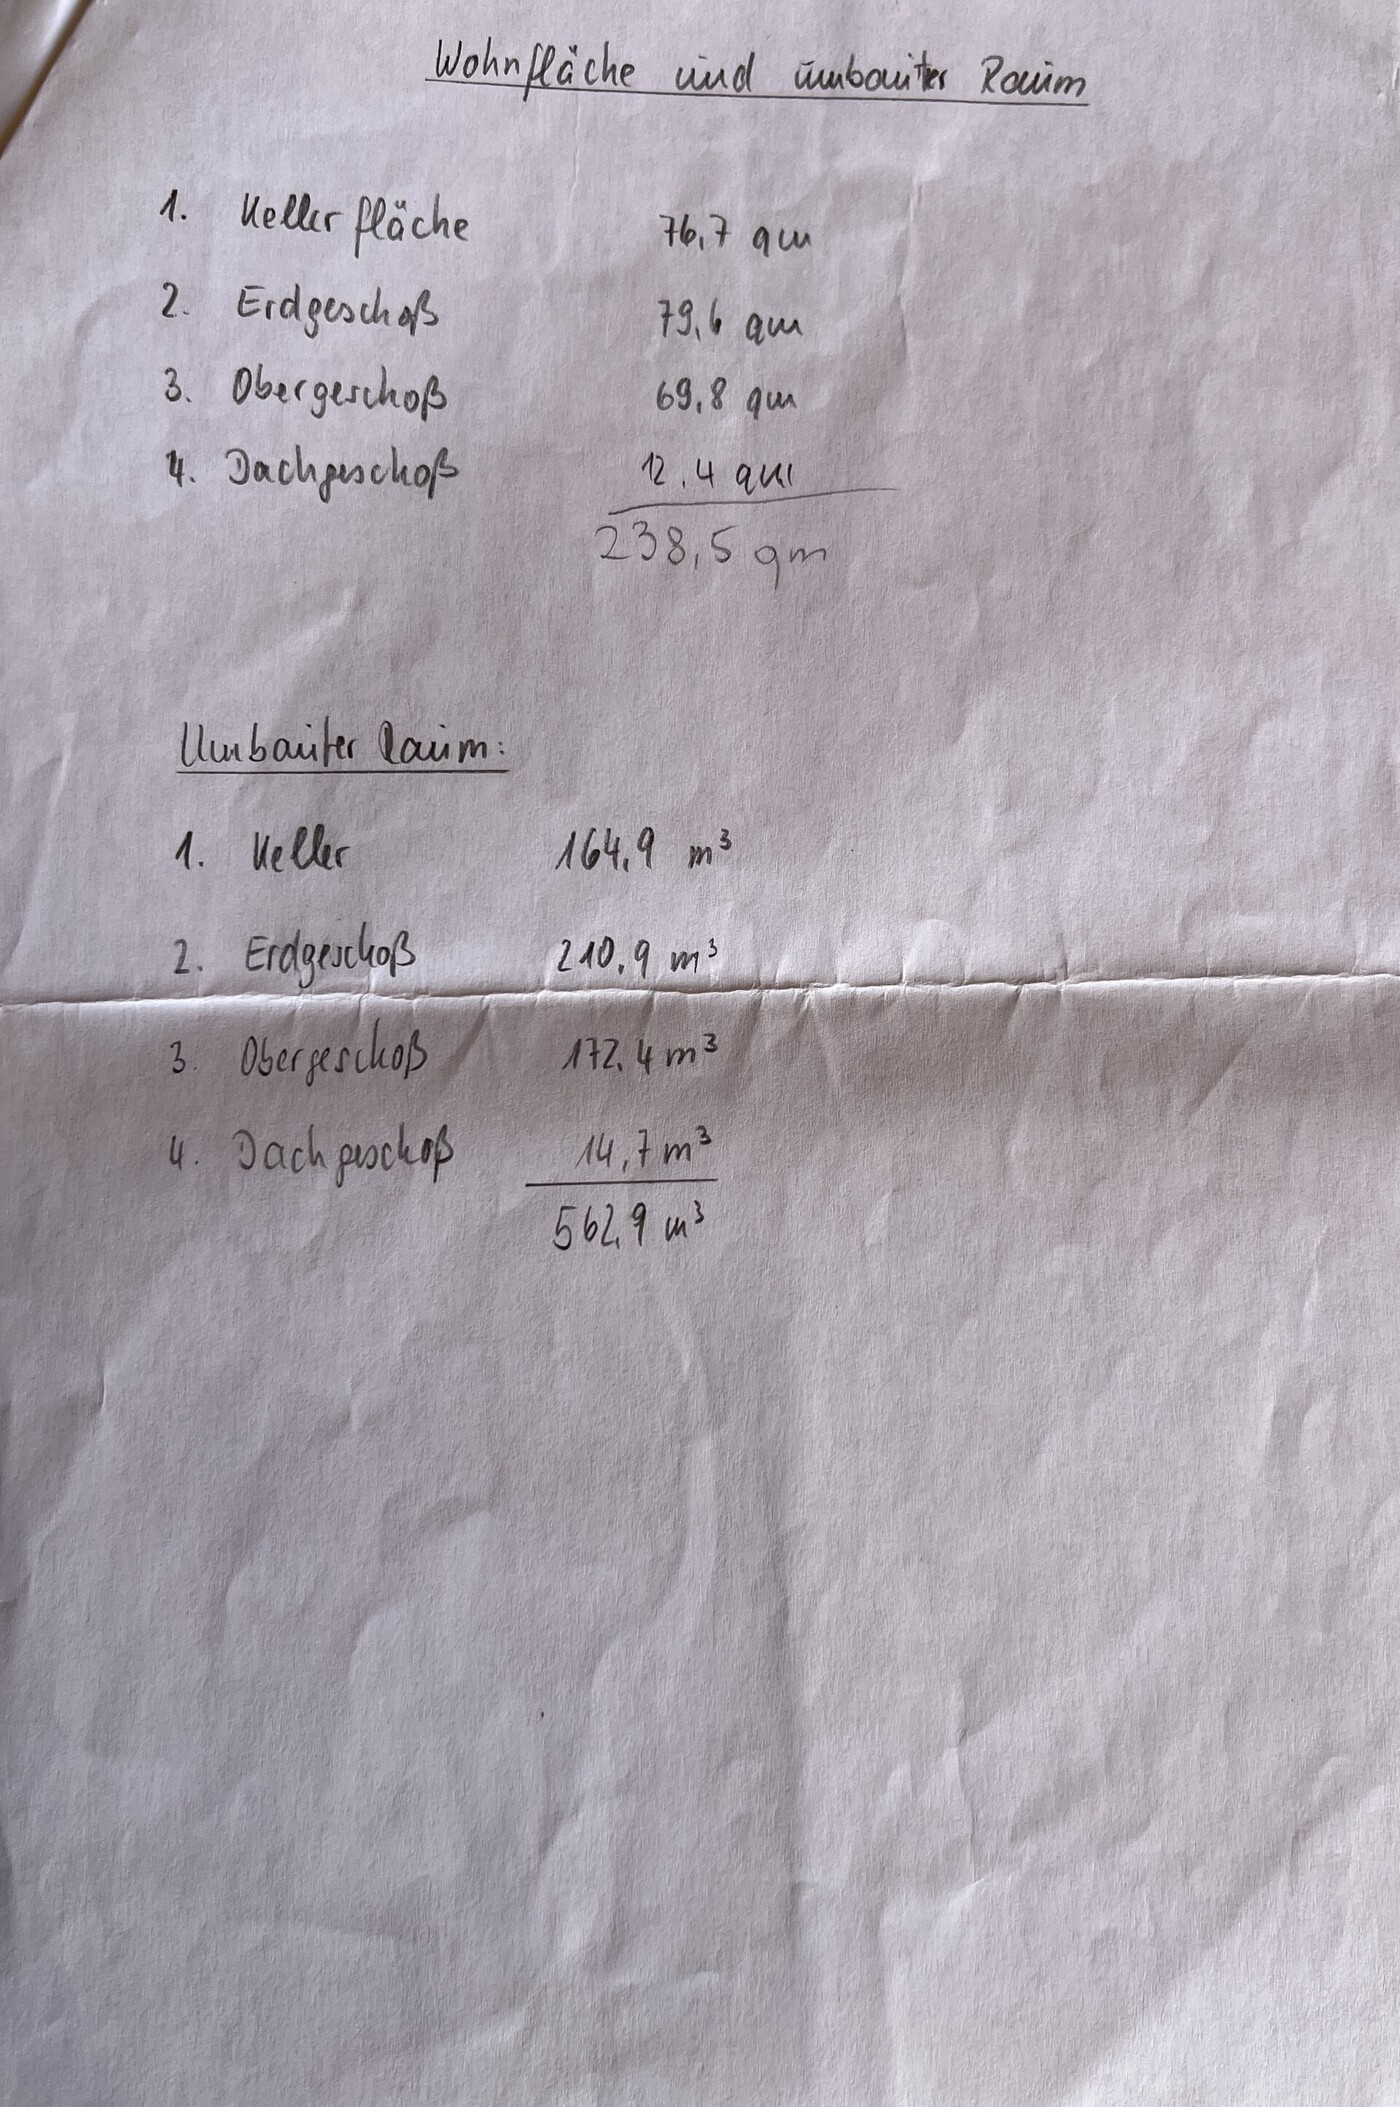 Wohnfläche und umbauter Raum
1. Kellerfläche 76,7 qm
2. Erdgeschoß 79,6 qm
3. Obergeschoß 69,8 qm
4. Dachgeschoß 12.4 qm
238,5 qm
Umbauter Raum:
1. Keller 164,9 m³
2. Erdgeschoß 210,9 m³
3. Obergeschoß 172,4 m³
4. Dachgeschoß 14,7 m³
562,9 m³